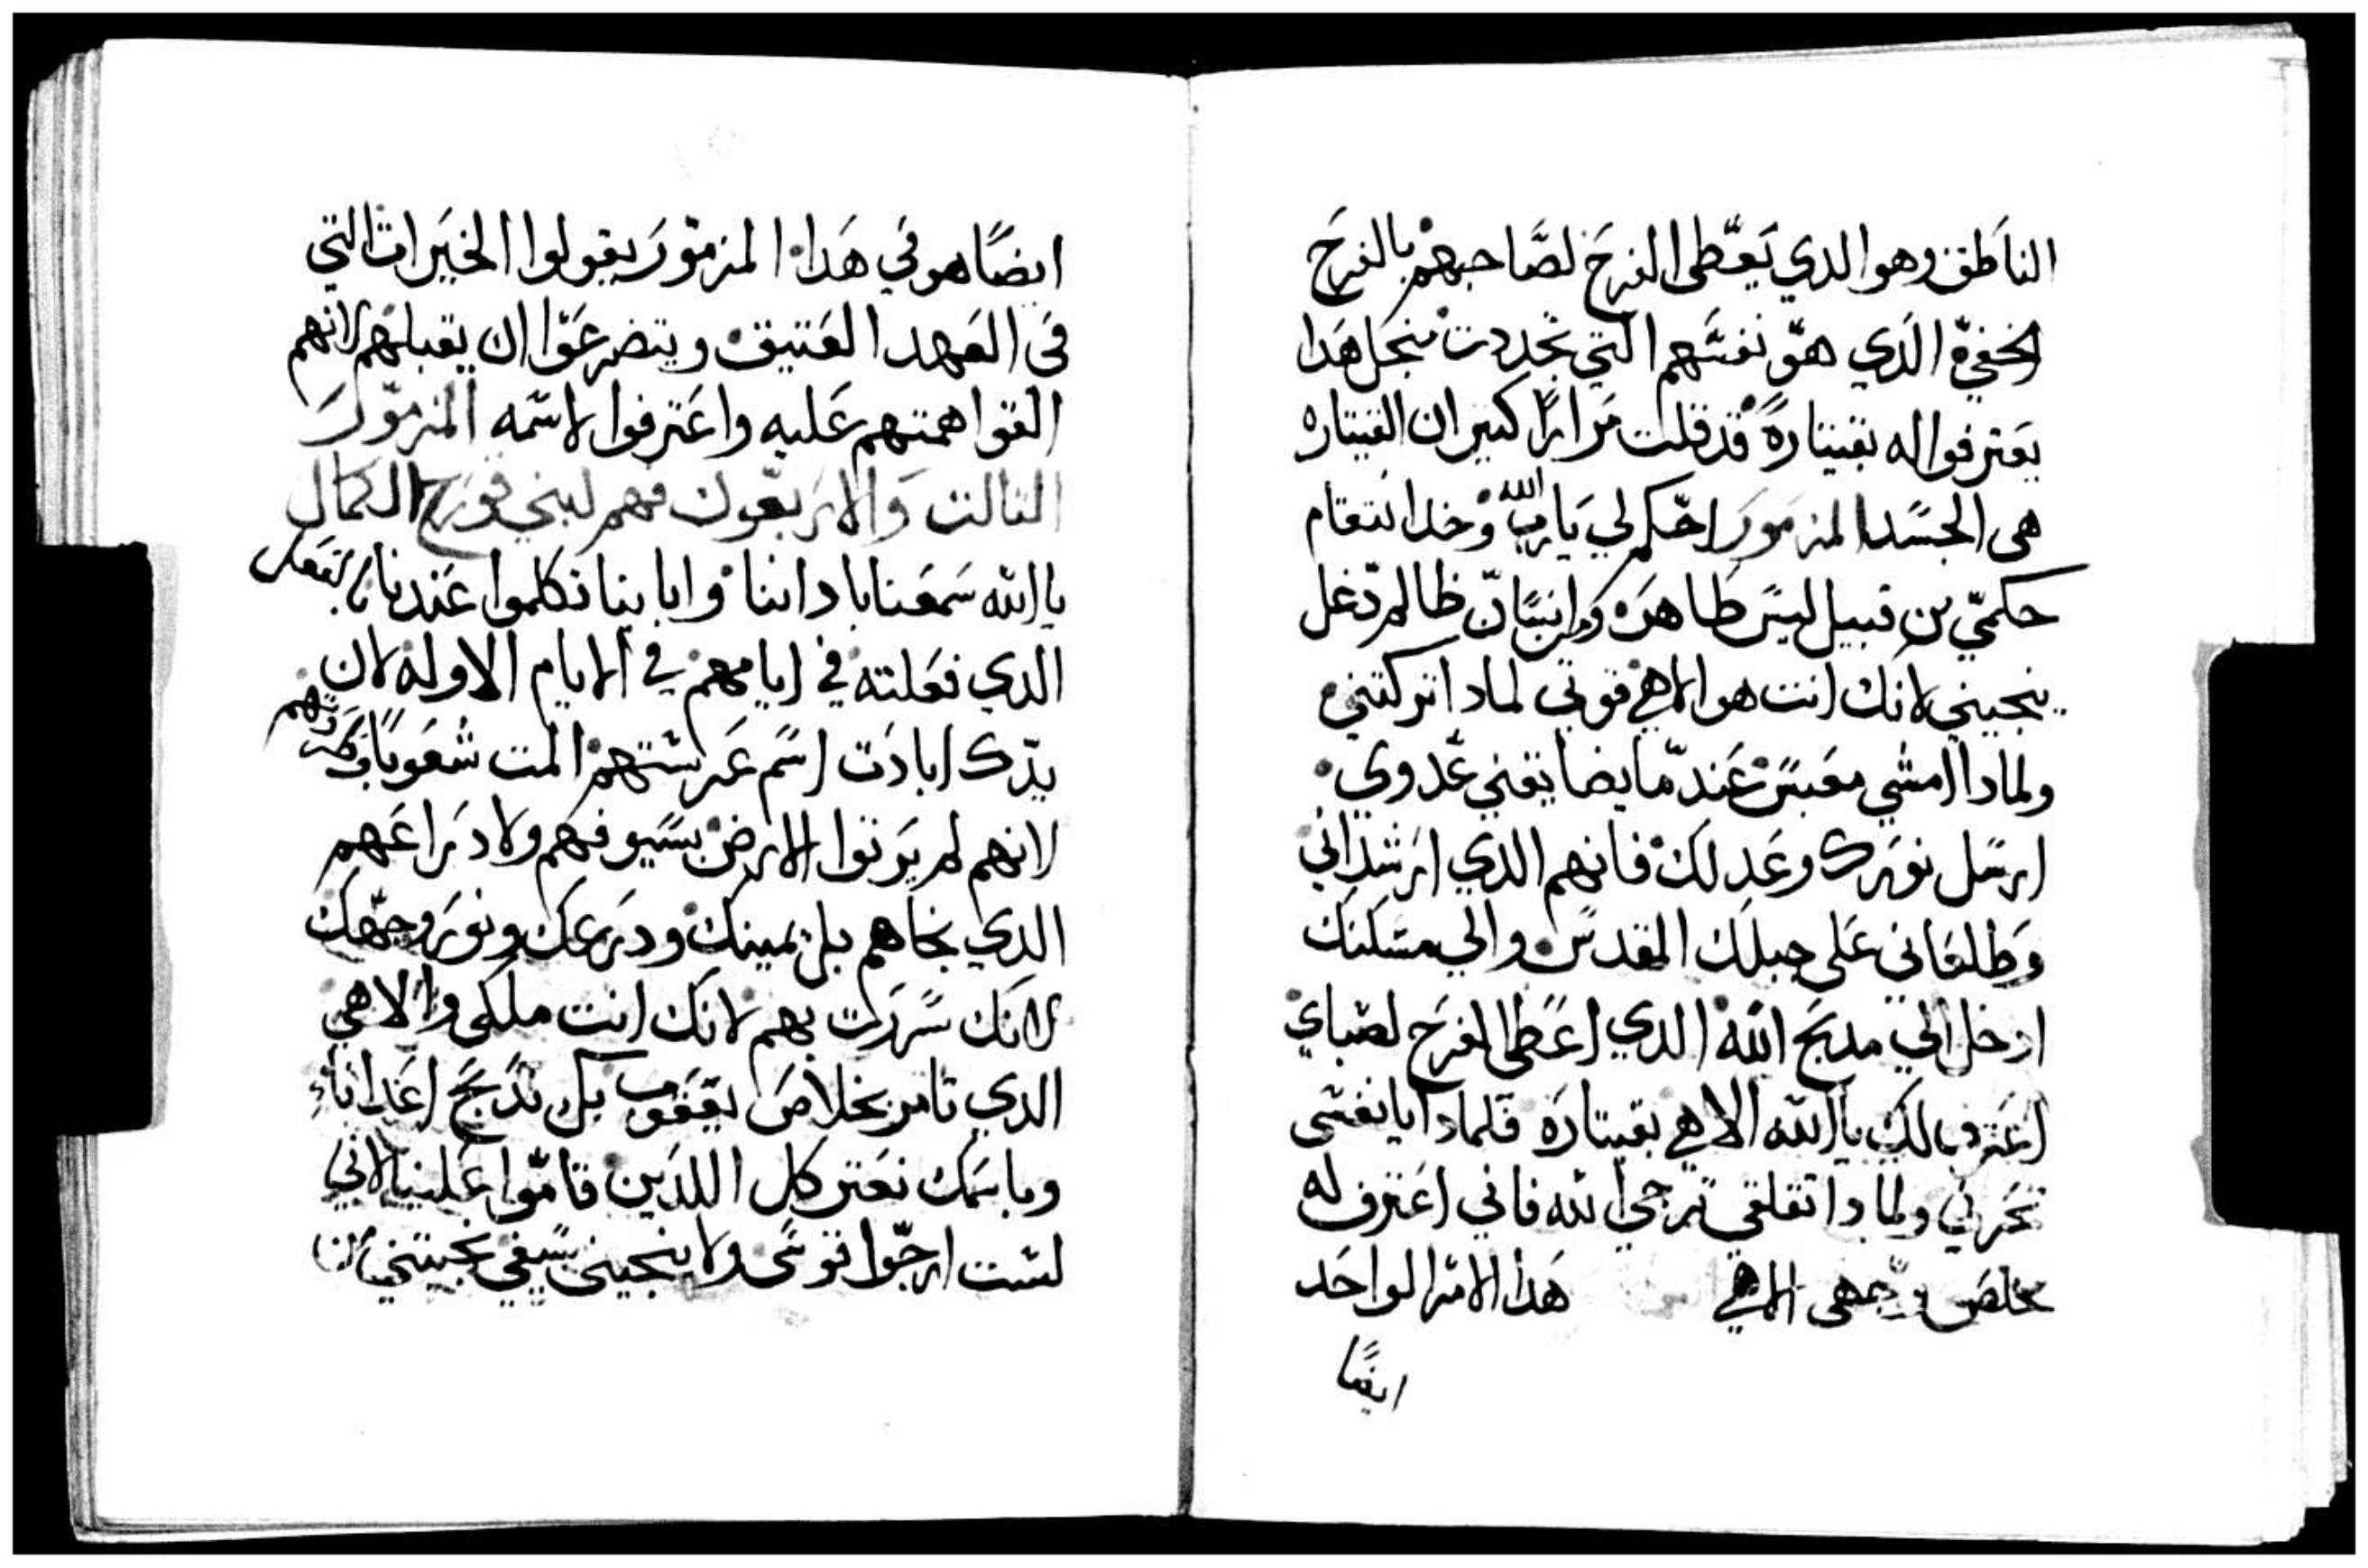 الناطق وهوا الدي يعطى الفرح لصاحبهم بالفرح
الخفي الدي هو نفسهم التي تجددت منجل هدا
يعترفوا له بقيتارة قد قلت مرارًا كتير ان القيتاره
هى الجسد المزمور احكم لي يارب الله وخد انتقام
حكمي من قبيل ليس طاهره ومن انسان ظالم دغل
ينجيني لانك انت هو الاهي قوتي لمادا تركتني
ولمادا امشي معبس عند ما يضايقني عدوي
ارسل نورك وعدلك فانهم الدي ارشداني
وطلعاني على جبلك المقدس والي مسكنك
ادخل الي مدبح الله الدي اعطى الفرح لصباي
اعترف لك ياالله الاهي بقيتارة فلمادا يانفسى
تحزني ولمادا تقلقي ترجي الله فاني اعترف له
خلاص وجهى الاهي هدا الامر الواحد
ايضًا
ايضًا هو في هدا المزمور يقولوا الخيرات التي
فى العهد العتيق ويتضرعوا ان يقبلهم لانهم
القوا همتهم عليه واعترفوا لاسمه المزمور
التالت والاربعون فهم لبني قورح الكمال
ياالله سمعنا بادانا وابابينا تكلموا عندنا بالفعل
الدي فعلته في ايامهم في الايام الاوله لان
يدك ابادت اسم غرستهم المت شعوبًا وطردتهم
لانهم لم يرتوا الارض بسيوفهم ولا دراعهم
الدي نجاهم بل يمينك ودرعك ونور وجهك
لانك سررت بهم لانك انت ملكى والاهي
الدي تامر بخلاص يعقوب بك ندبح اعدانا
وباسمك نعتر كل اللدين قاموا علينا لاني
لست ارجوا قوسى ولا ينجينى سيفي نجيتني من